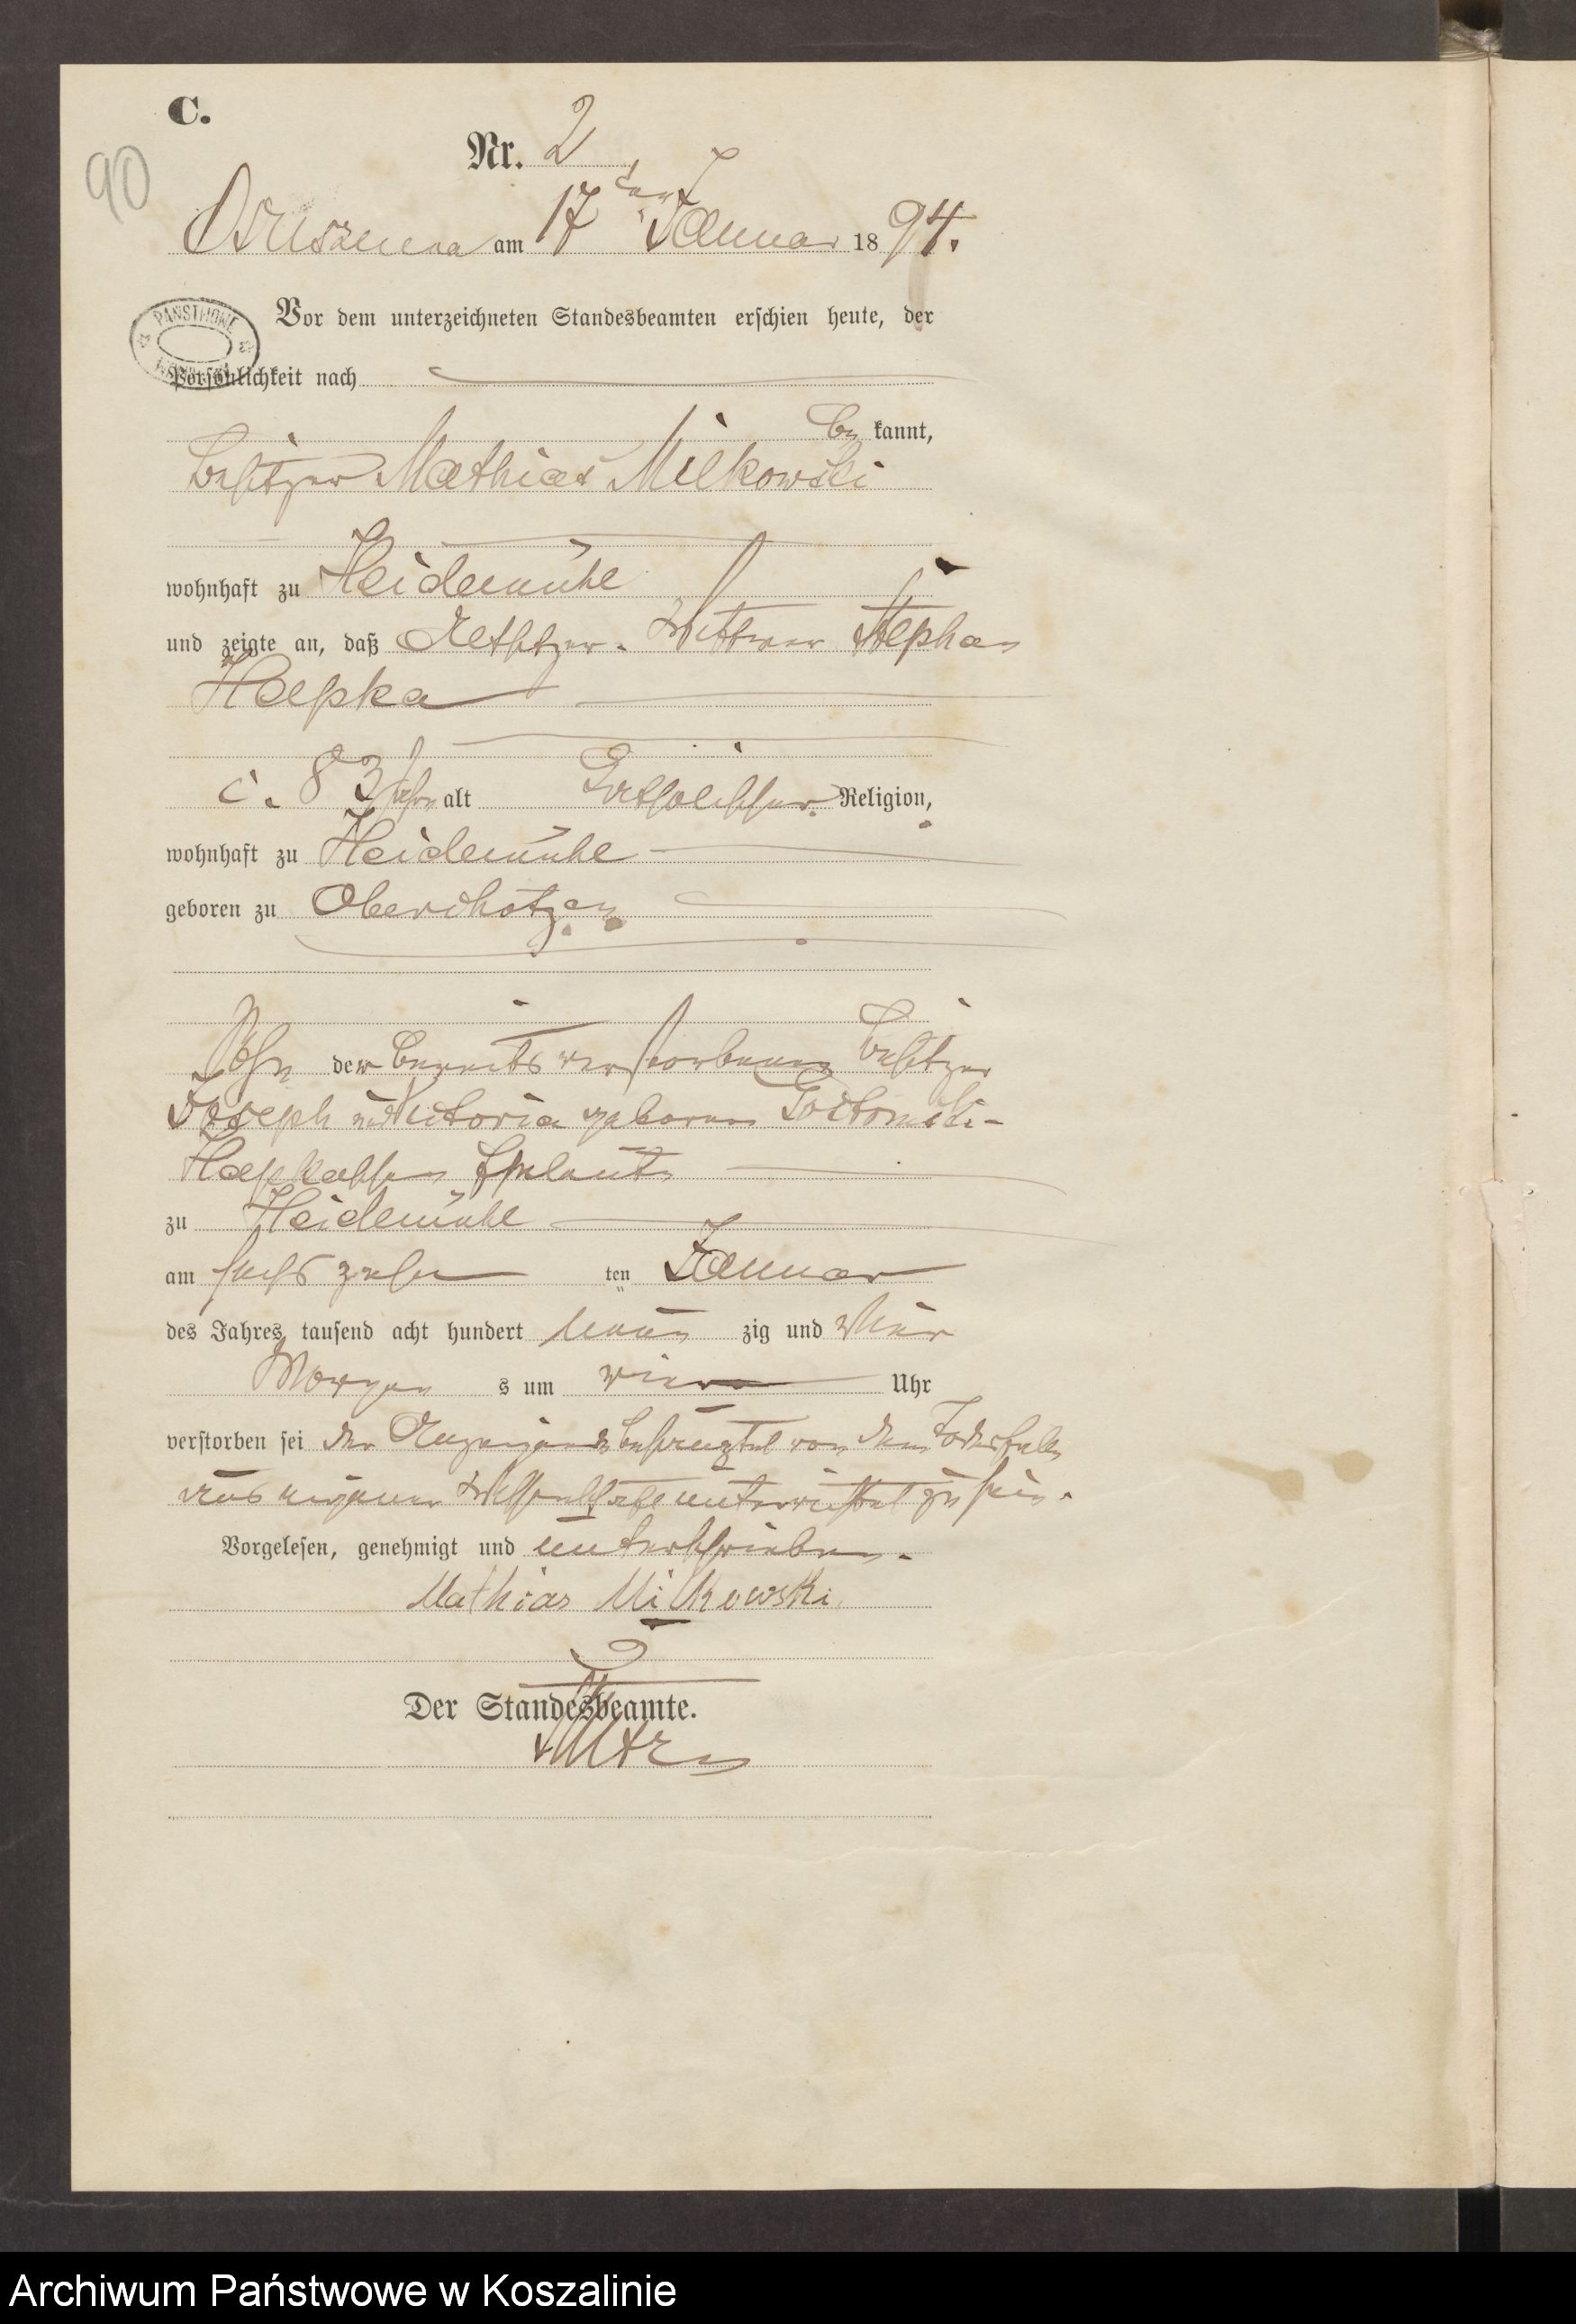 C.
90
Nr. 2
am 17ten Januar 1894.
PAŃSTWOWE
Vor dem unterzeichneten Standesbeamten erschien heute, der
Persönlichkeit nach
be kannt,
Besitzer Mathias Milkowski
wohnhaft zu Heidemühl
und zeigte an, daß Wittwer Stephan
Hapka
c. 83 Jahre alt katholischer Religion,
wohnhaft zu Heidemühl
geboren zu Oberchotzen
Sohn der bereits verstorbenen Besitzer
Joseph und Victoria geboren
Hapkaschen Eheleute
zu Heidemühl
am sechszehn ten Januar
des Jahres tausend acht hundert neun zig und vier
Morgen s um vier Uhr
verstorben sei der Anzeigende von dem Todesfalle
aus eigener Wissenschaft unterrichtet zu sein.
Vorgelesen, genehmigt und unterschrieben.
Mathias Milkowski
Der Standesbeamte.
Archiwum Państwowe w Koszalinie